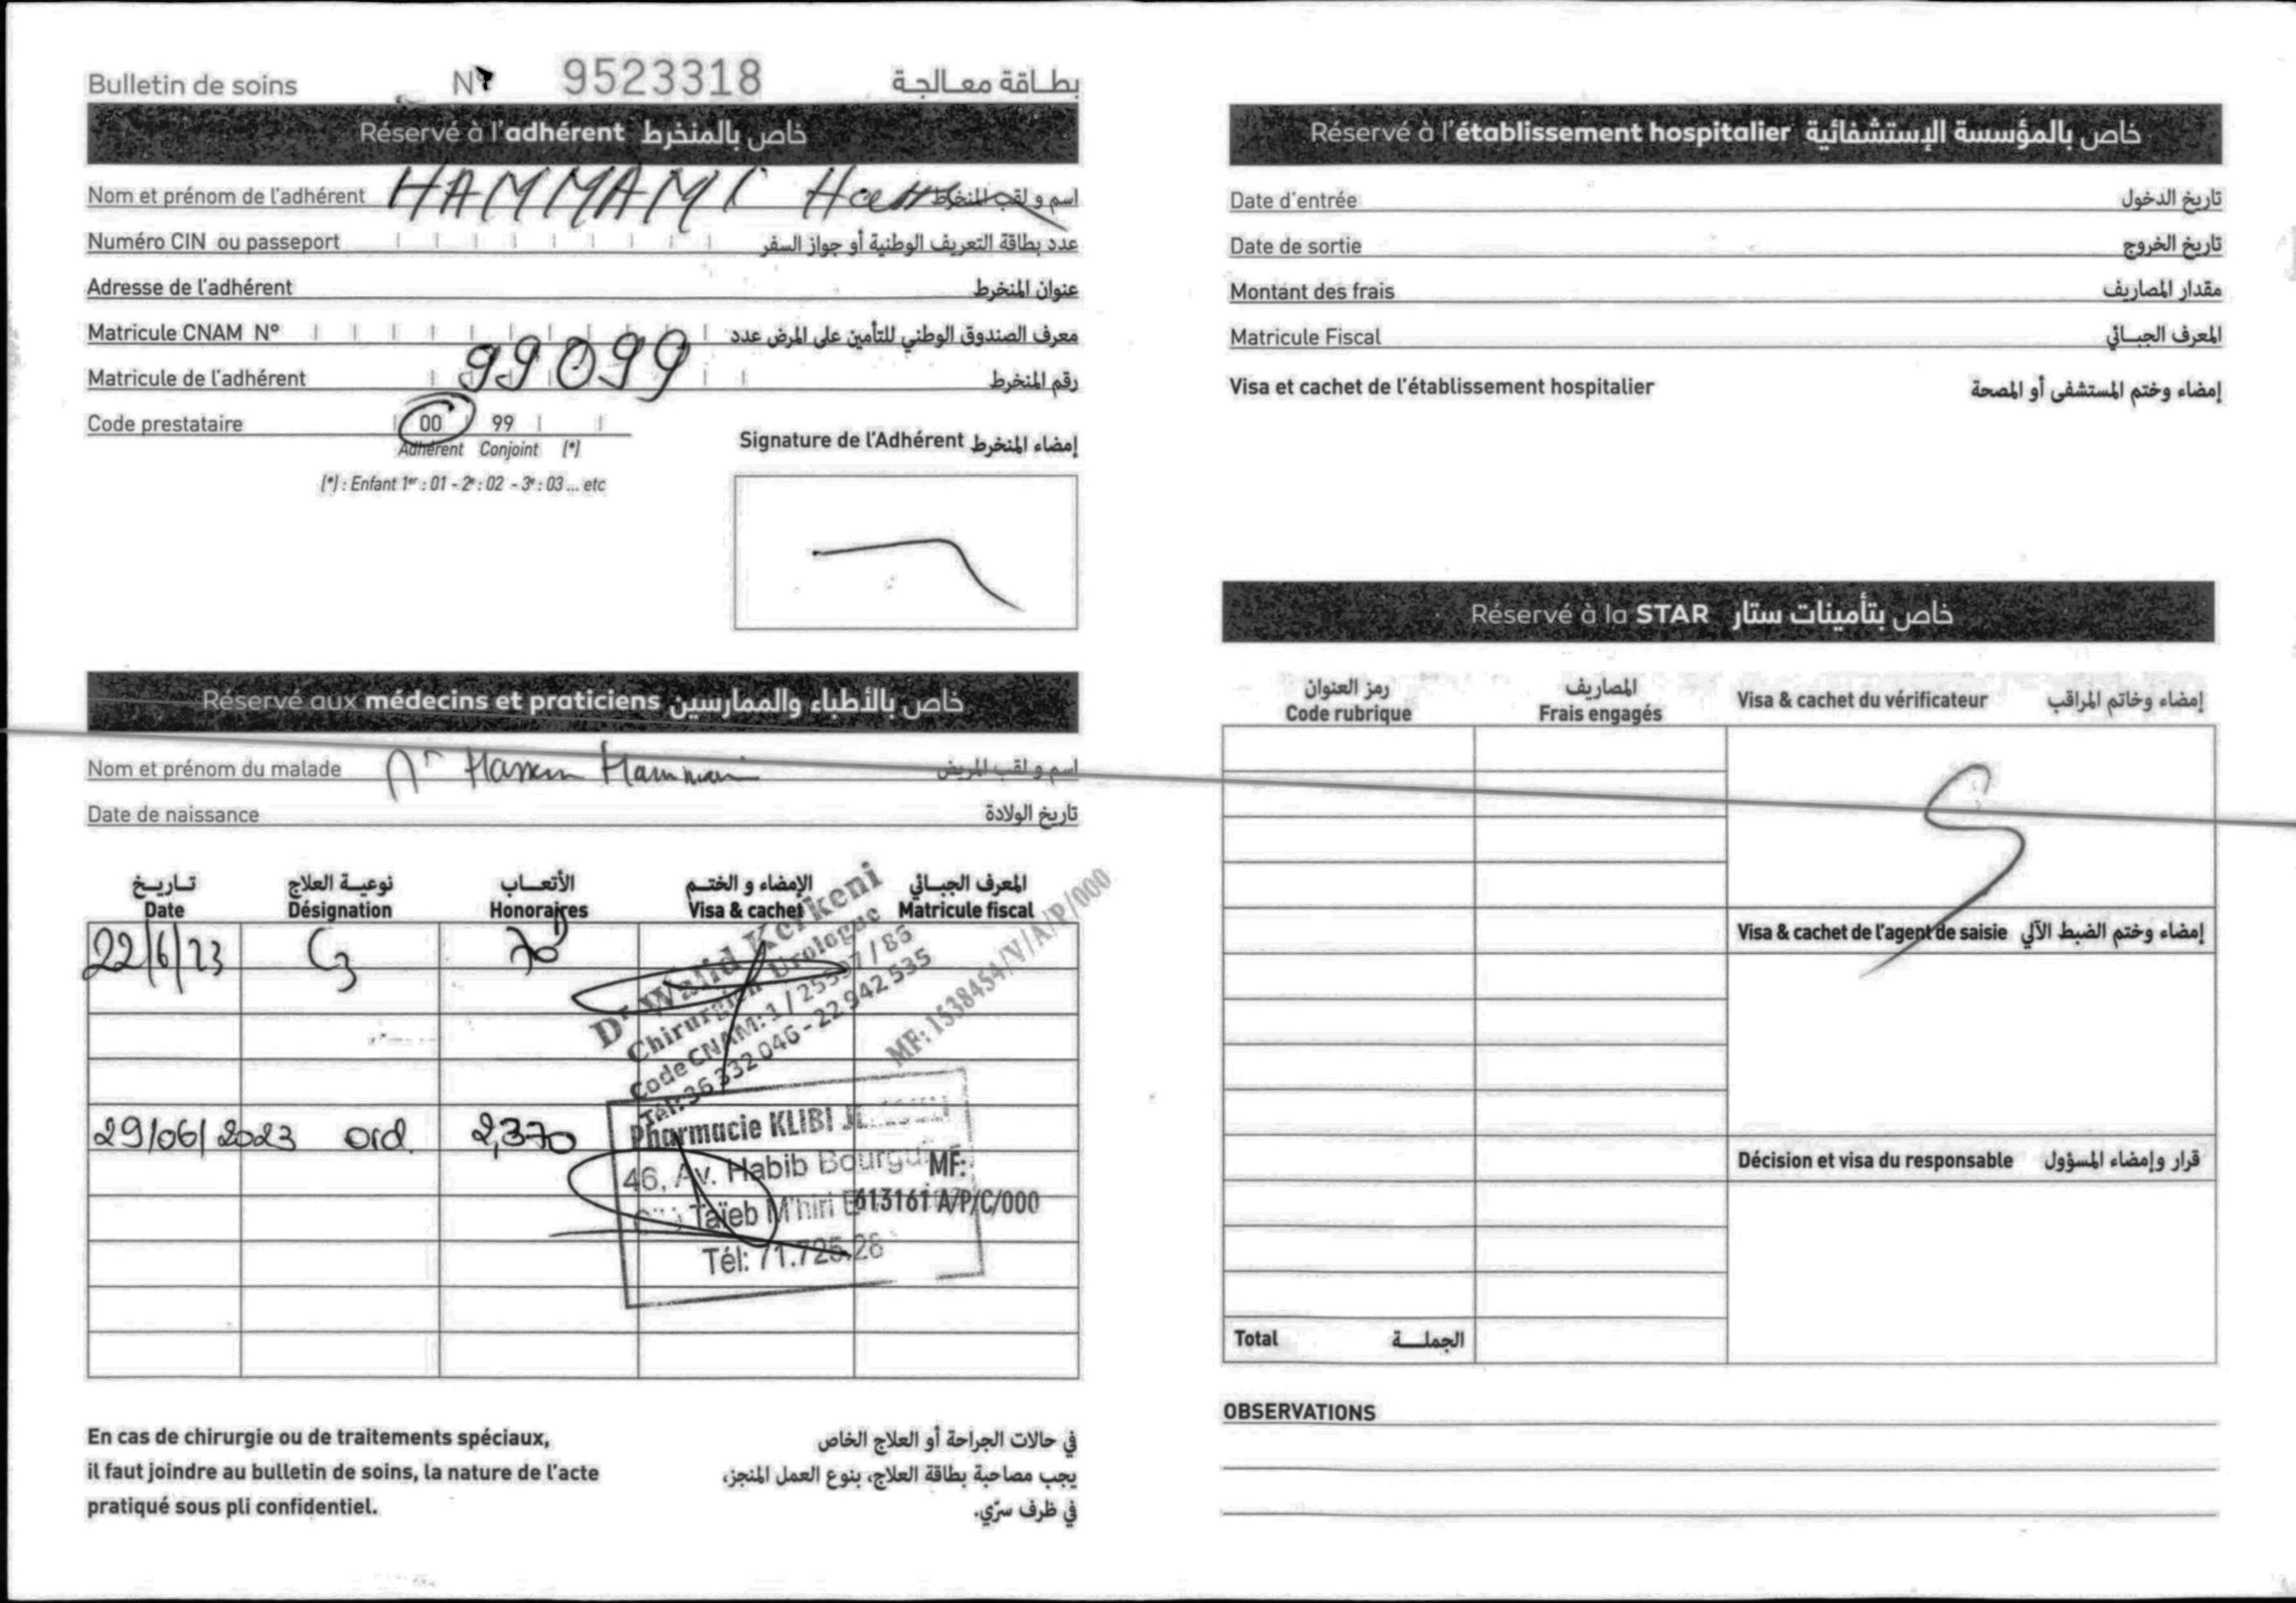 Bulletin de soins N° 9523318 بطاقة معالجة
Réservé à l'adhérent خاص بالمنخرط
Nom et prénom de l'adhérent HAMMAMI اسم و لقب المنخرط
Numéro CIN ou passeport عدد بطاقة التعريف الوطنية أو جواز السفر
Adresse de l'adhérent عنوان المنخرط
Matricule CNAM N° معرف الصندوق الوطني للتأمين على المرض عدد
Matricule de l'adhérent 99099 رقم المنخرط
Code prestataire 00 99
Adhérent Conjoint (*)
(*) : Enfant 1er : 01 - 2e : 02 - 3e : 03 ... etc
Signature de l'Adhérent إمضاء المنخرط
Réservé aux médecins et praticiens خاص بالأطباء والممارسين
Nom et prénom du malade Mr Hassen Hammami اسم و لقب المريض
Date de naissance تاريخ الولادة
تاريخ نوعية العلاج الأتعاب الإمضاء و الختم المعرف الجبائي
Date Désignation Honoraires Visa & cachet Matricule fiscal
22/6/23 C3 70
Dr Walid Kerkeni
Chirurgien Urologue
Code CNAM: 1 / 25597 / 86
Tél: 36 332 046 - 22 942 535
MF: 1538454/V/A/P/000
29/06/2023 ord 2,370
Pharmacie KLIBI
46, Av. Habib
Taïeb M'hiri
Tél: 71.725
MF:
613161 A/P/C/000
En cas de chirurgie ou de traitements spéciaux,
il faut joindre au bulletin de soins, la nature de l'acte
pratiqué sous pli confidentiel.
في حالات الجراحة أو العلاج الخاص
يجب مصاحبة بطاقة العلاج، بنوع العمل المنجز،
في ظرف سرّي.
Réservé à l'établissement hospitalier خاص بالمؤسسة الإستشفائية
Date d'entrée تاريخ الدخول
Date de sortie تاريخ الخروج
Montant des frais مقدار المصاريف
Matricule Fiscal المعرف الجبائي
Visa et cachet de l'établissement hospitalier إمضاء وختم المستشفى أو المصحة
Réservé à la STAR خاص بتأمينات ستار
رمز العنوان المصاريف
Code rubrique Frais engagés Visa & cachet du vérificateur إمضاء وخاتم المراقب
Visa & cachet de l'agent de saisie إمضاء وختم الضبط الآلي
Décision et visa du responsable قرار وإمضاء المسؤول
Total الجملة
OBSERVATIONS